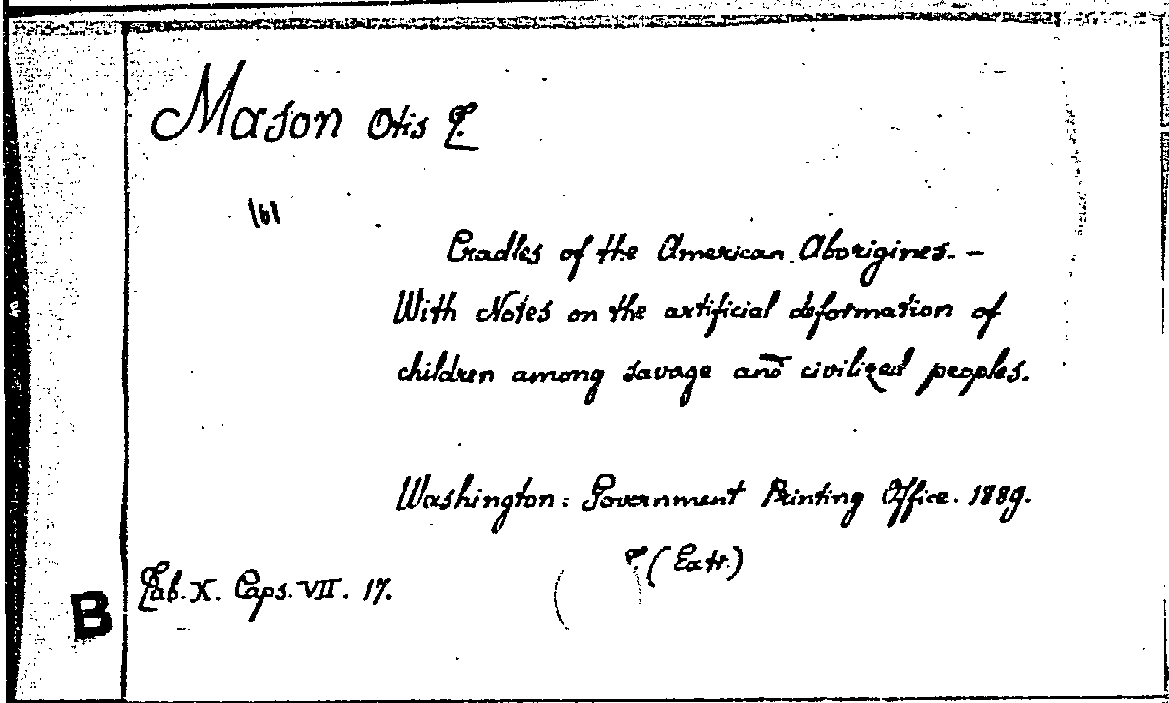 Mason Otis T.
161
Cradles of the American Aborigines. -
With Notes on the artificial deformation of
children among savage and civilized peoples.
Washington: Government Printing Office. 1889.
(Extr.)
B
Lab. X. Caps. VII. 17.